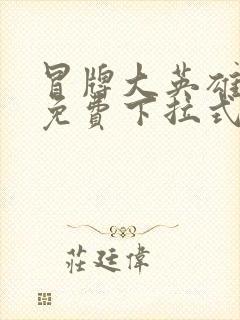 冒牌大英雄
免費下拉式
莊廷偉